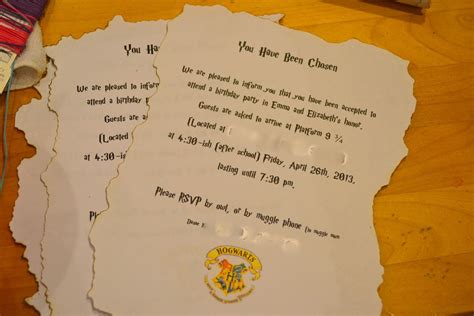 You Have Been Chosen
We are pleased to inform you that you have been accepted to
attend a birthday party in Emma and Elizabeth's honor.
Guests are asked to arrive at Platform 9 ¾
(Located at
at 4:30-ish (after school) Friday, April 26th, 2013.
lasting until 7:30 pm.
Please RSVP by owl, or by muggle phone (to muggle mom
HOGWARTS
You Ha
We are pleased to inform
attend a birthday
Guests are
(Located
at 4:30-ish (a
Please RSVP